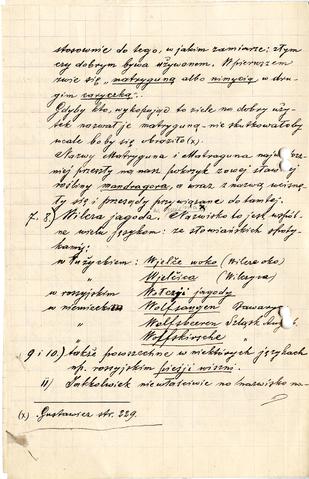 stosownie do tego, w jakim zamiarze: złym
czy dobrym bywa używanem. W pierwszem
zwie się „matryguną albo nimycią w dru-
gim zatyczką".
Gdyby kto, wykopując to ziele na dobry uży-
tek nazwał je matryguną - nie skutkowałoby
wcale bo by się obraziło (x).
Nazwy Matryguna i Matraguna naj
niej przeszły na nasz pokrzyk z owej sławnej
rośliny mandragora, a wraz z nazwą wcisnę-
ły się i przesądy przywiązane do tamtej.
7. 8.) Wilcza jagoda. Nazwisko to jest wspól-
ne wielu językom: ze słowiańskich spoty-
kamy:
w łużyckiem: Wjelče woko (Wilcze oko)
" Wjelčica (Wilczyca)
w rosyjskim Wołczji jagody
w niemieck Wolfsaugen Bawarya
" Wolfsbeeren Szląsk Au
" Wolfskirsche
9 i 10.) także powszechne w niektórych językach
np. rosyjskim pieśji wiszni.
11) Jakkolwiek niewłaściwie to nazwisko na-
(x) Gustawicz str. 229.